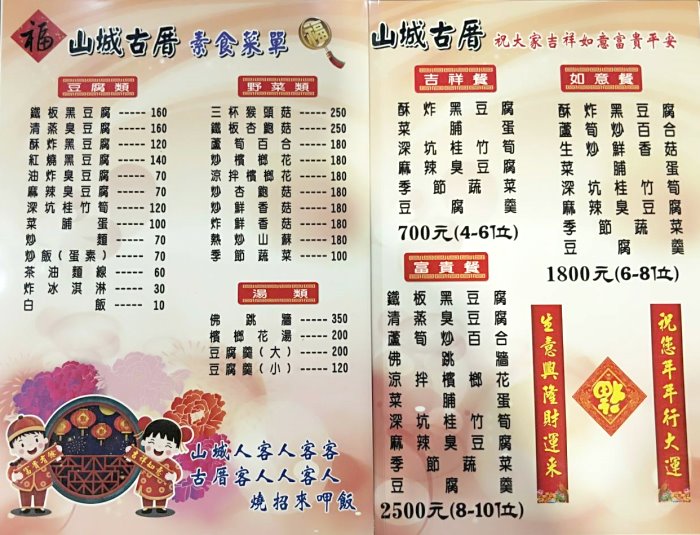 福 山城古厝 素食菜單 福
豆腐類
鐵板黑豆腐-----160
清蒸臭豆腐-----160
酥炸黑豆腐-----120
紅燒黑豆腐-----140
油炸臭豆腐-----70
麻辣臭豆腐-----70
深坑桂竹筍-----120
菜脯蛋-----100
炒麵-----70
炒飯(蛋素)-----70
茶油麵線-----60
炸冰淇淋-----30
白飯-----10
野菜類
三杯猴頭菇-----250
鐵板杏鮑菇-----250
蘆筍百合-----180
炒檳榔花-----180
涼拌檳榔花-----180
炒杏鮑菇-----180
炒鮮香菇-----180
炸鮮香菇-----180
熱炒山蘇-----180
季節蔬菜-----100
湯類
佛跳牆-----350
檳榔花湯-----200
豆腐羹(大)-----200
豆腐羹(小)-----120
山城人客人客客
古厝客人人人客
燒招來呷飯
山城古厝 祝大家吉祥如意富貴平安
吉祥餐
酥炸黑豆腐
菜脯蛋
深坑桂竹筍
麻辣臭豆腐
季節蔬菜
豆腐羹
700元(4-6位)
如意餐
酥炸黑豆腐
蘆筍炒百合
生炒鮮香菇
菜脯蛋
深坑桂竹筍
麻辣臭豆腐
季節蔬菜
豆腐羹
1800元(6-8位)
富貴餐
鐵板黑豆腐
清蒸臭豆腐
蘆筍炒百合
佛跳牆
涼拌檳榔花
菜脯蛋
深坑桂竹筍
麻辣臭豆腐
季節蔬菜
豆腐羹
2500元(8-10位)
生意興隆財運來
福
祝您年年行大運